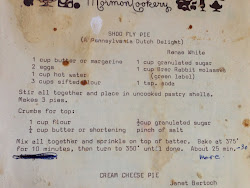 Mormon Cookery
SHOO FLY PIE
(A Pennsylvania Dutch Delight)
Renee White
1 cup butter or margerine 1 cup granulated sugar
2 eggs 1 cup Brer Rabbit molasses
1 cup hot water (green label)
3 cups sifted flour 1 tsp. soda
Stir all together and place in uncooked pastry shells.
Makes 3 pies.
Crumbs for top:
1 cup flour ½ cup granulated sugar
½ cup butter or shortening pinch of salt
Mix all together and sprinkle on top of batter. Bake at 375°
for 10 minutes, then turn to 350° until done. About 25 min.-30
more
CREAM CHEESE PIE
Janet Bartoch